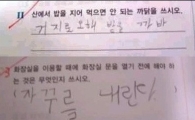 산에서 밥을 지어 먹으면 안 되는 까닭을 쓰시오.
거지로 오해 받을 까 봐
화장실을 이용할 때에 화장실 문을 열기 전에 해야 하
는 것은 무엇인지 쓰시오.
(자꾸를 내린다